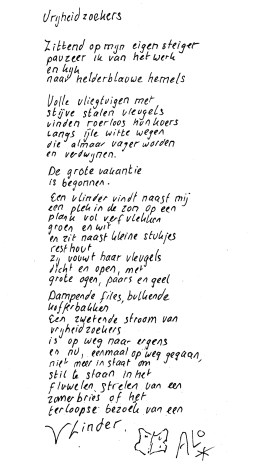 Vrijheidzoekers
Zittend op mijn eigen steiger
pauzeer ik van het werk
en kijk
naar helderblauwe hemels
Volle vliegtuigen met
stijve stalen vleugels
vinden roerloos hun koers
langs ijle witte wegen
die almaar vager worden
en verdwijnen.
De grote vakantie
is begonnen.
Een vlinder vindt naast mij
een plek in de zon op een
plank vol verfvlekken
groen en wit
en zit naast kleine stukjes
resthout
zij vouwt haar vleugels
dicht en open, met
grote ogen, paars en geel
Dampende files, bulkende
kofferbakken
Een zwetende stroom van
vrijheidzoekers
is op weg naar ergens
en nu, eenmaal op weg gegaan,
niet meer in staat om
stil te staan in het
fluwelen strelen van een
zomerbries of het
terloopse bezoek van een
Vlinder.